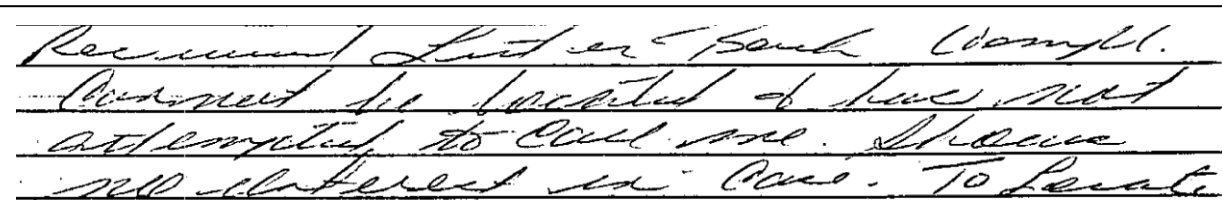 Recommend Letter Compl.
Cannot be located & have not
attempted to call me. Shows
no interest in Case. To Locate